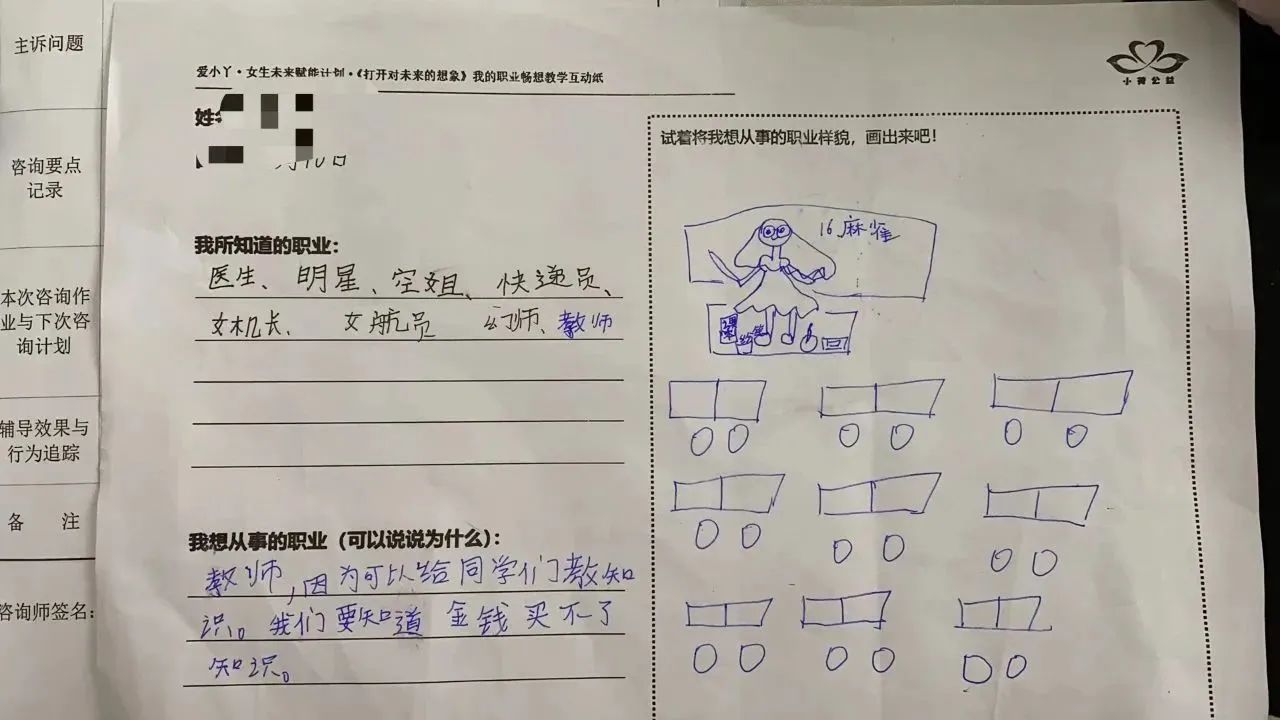 主诉问题
咨询要点
记录
本次咨询作
业与下次咨
询计划
辅导效果与
行为追踪
备 注
咨询师签名：
爱小丫·女生未来赋能计划·《打开对未来的想象》我的职业畅想教学互动纸
小荷公益
姓
月10日
我所知道的职业：
医生、明星、空姐、快递员、
女机长、 女航员 幻师、教师
我想从事的职业（可以说说为什么）：
教师，因为可以给同学们教知
识。我们要知道 金钱买不了
知识。
试着将我想从事的职业样貌，画出来吧！
16，麻雀